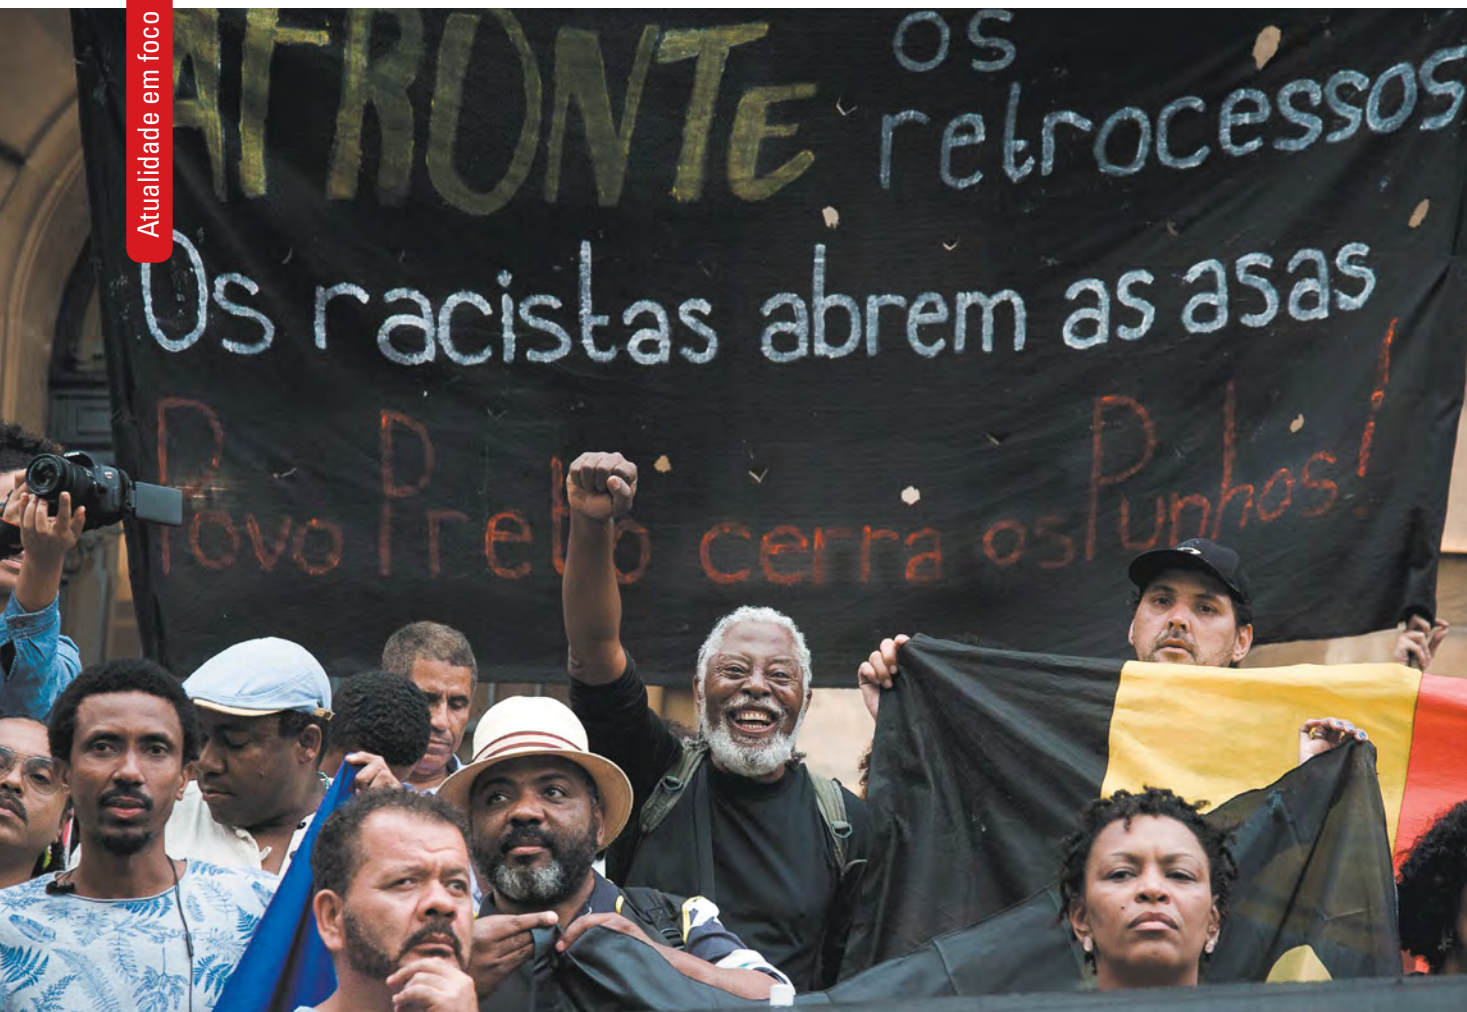 Atualidade em foco
AFRONTE os
retrocessos
Os racistas abrem as asas
Povo Preto cerra os Punhos!